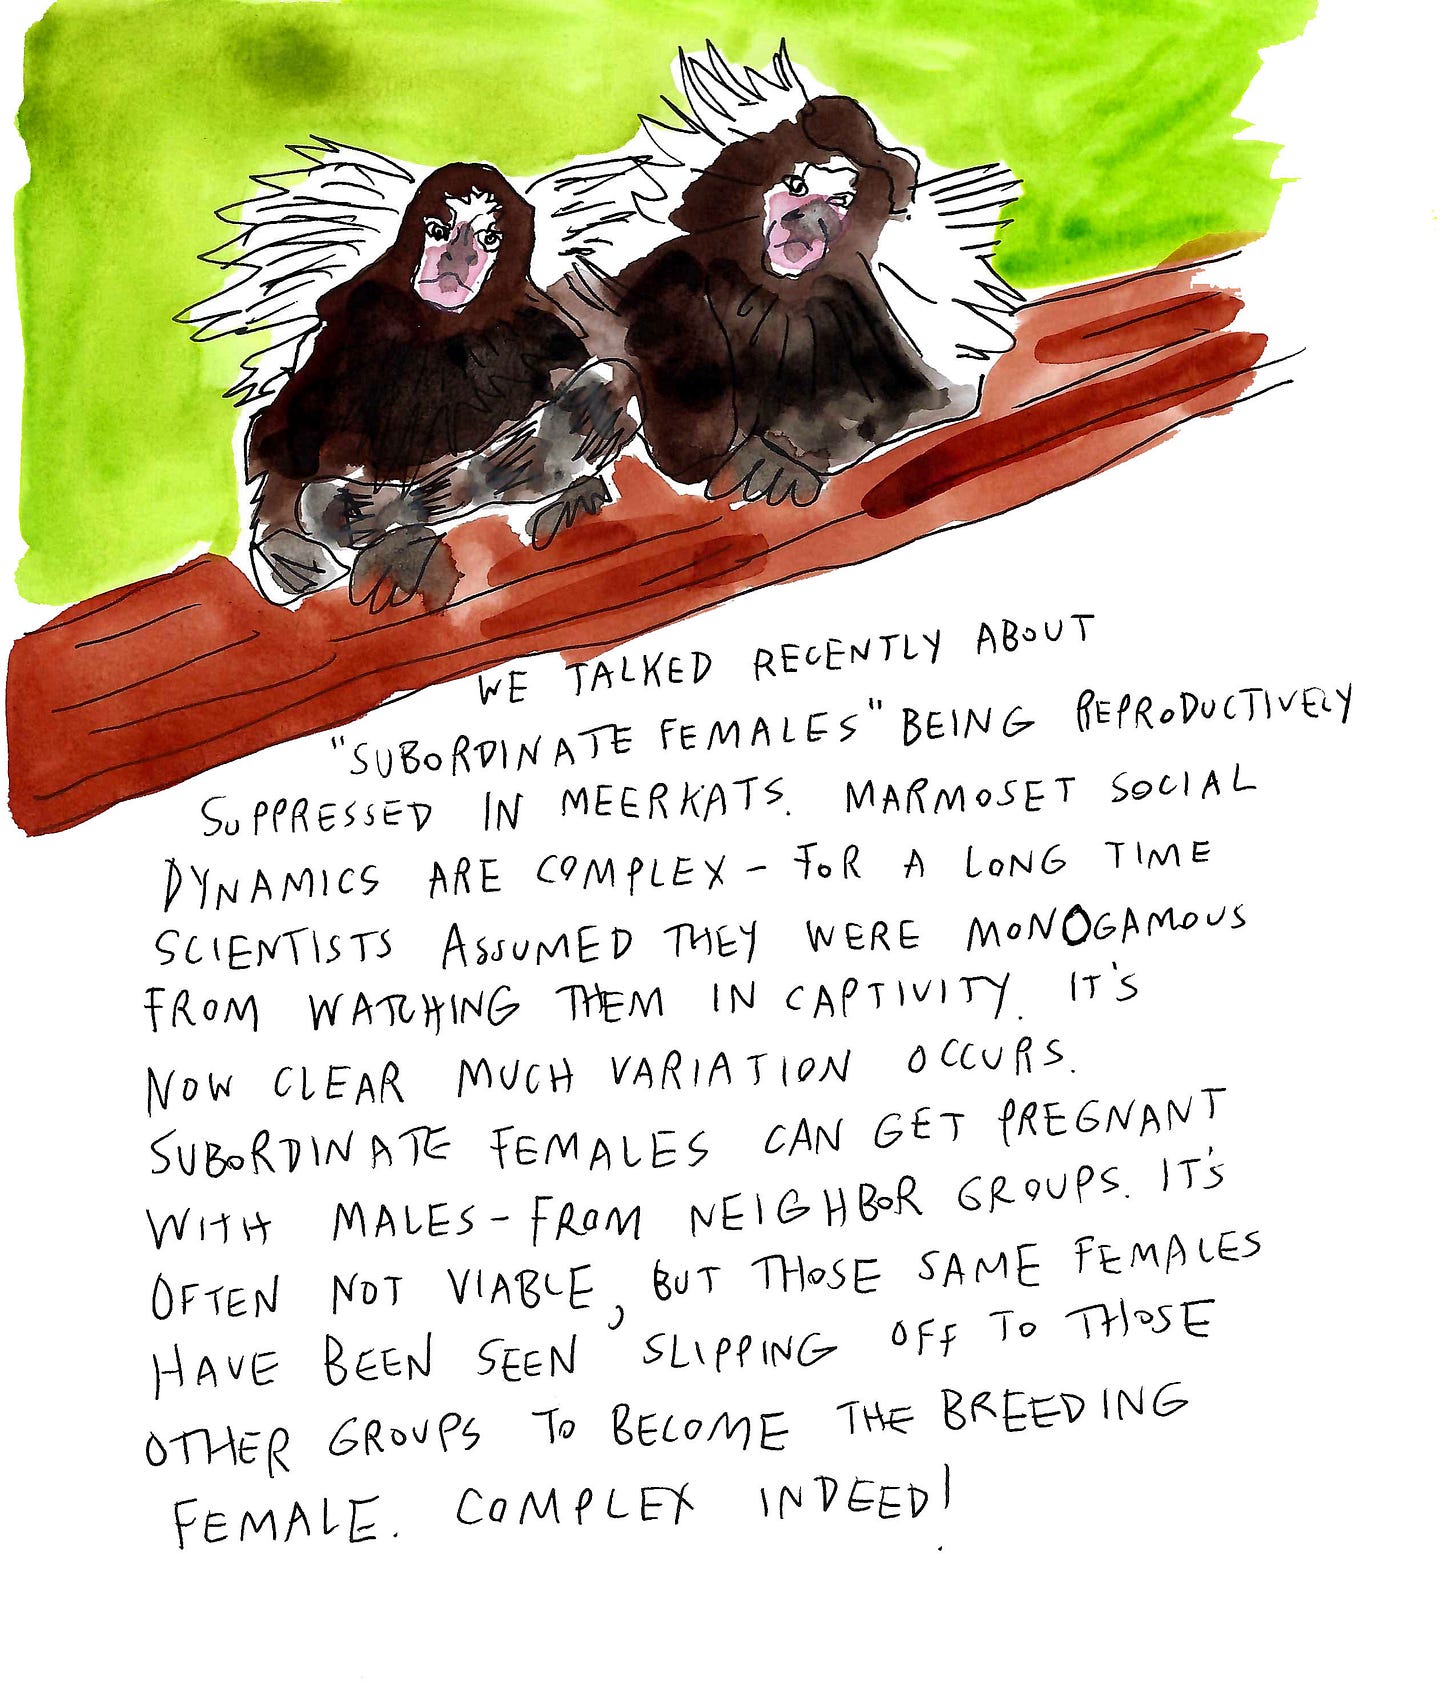 WE TALKED RECENTLY ABOUT
"SUBORDINATE FEMALES" BEING REPRODUCTIVELY
SUPPRESSED IN MEERKATS. MARMOSET SOCIAL
DYNAMICS ARE COMPLEX - FOR A LONG TIME
SCIENTISTS ASSUMED THEY WERE MONOGAMOUS
FROM WATCHING THEM IN CAPTIVITY. IT'S
NOW CLEAR MUCH VARIATION OCCURS.
SUBORDINATE FEMALES CAN GET PREGNANT
WITH MALES - FROM NEIGHBOR GROUPS. IT'S
OFTEN NOT VIABLE, BUT THOSE SAME FEMALES
HAVE BEEN SEEN SLIPPING OFF TO THOSE
OTHER GROUPS TO BECOME THE BREEDING
FEMALE. COMPLEX INDEED!